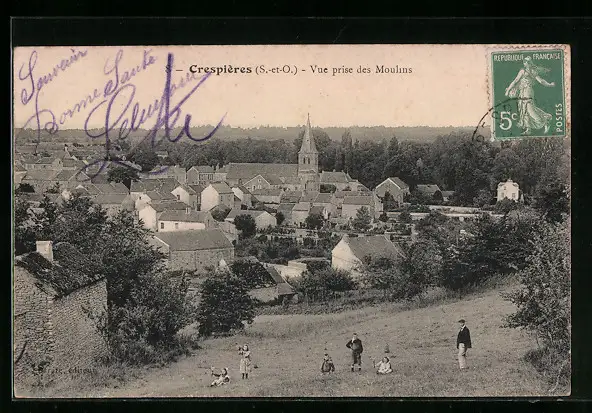 Crespières (S.-et-O.) – Vue prise des Moulins
REPUBLIQUE FRANÇAISE
5c
POSTES
Souvenir
Bonne Santé
éditeur